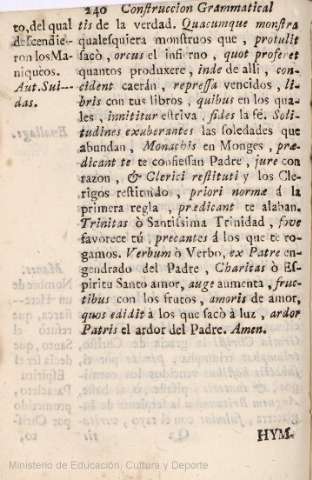 240 Construccion Grammatical
to, del qual
descendie-
ron los Ma-
niqueos.
Aut. Sui-
das.
tis de la verdad. Quacumque monstra
qualesquiera monstruos que, protulit
sacò, orcus el infierno, quot proferet
quantos produxere, inde de alli, con-
cident caerán, repressa vencidos, li-
bris con tus libros, quibus en los qua-
les, innititur estriva, fides la fé. Soli-
tudines exuberantes las soledades que
abundan, Monachis en Monges, præ-
dicant te te confiessan Padre, jure con
razon, & Clerici restituti y los Cle-
rigos restituìdo, priori normæ á la
primera regla, prædicant te alaban.
Trinitas ò Santissima Trinidad, fove
favorece tú, precantes á los que te ro-
gamos. Verbum ò Verbo, ex Patre en-
gendrado del Padre, Charitas ò Es-
piritu Santo amor, auge aumenta, fruc-
tibus con los frutos, amoris de amor,
quos edidit à los que sacò à luz, ardor
Patris el ardor del Padre. Amen.
HYM-
Ministerio de Educación, Cultura y Deporte